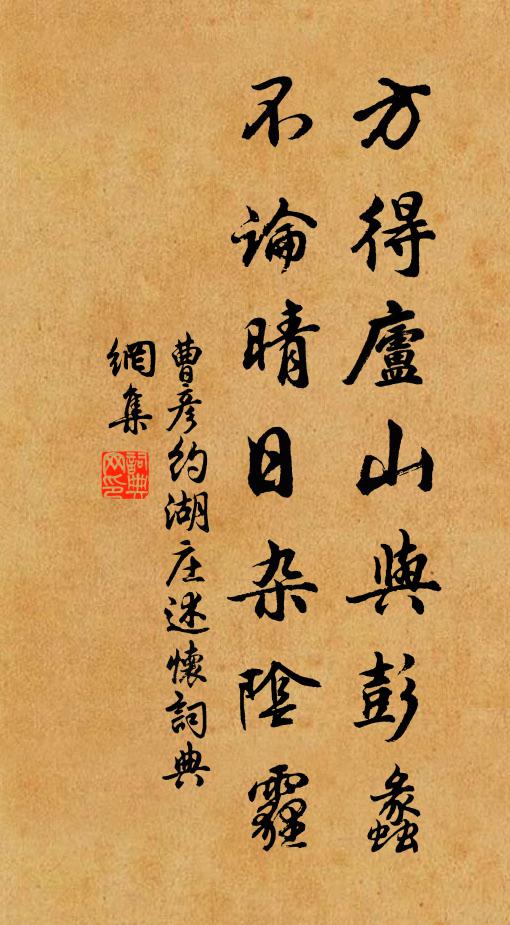 方得廬山與彭蠡
不論晴日杂陰霾
曹彥約湖庄述懷詞典
網集
詞典網印